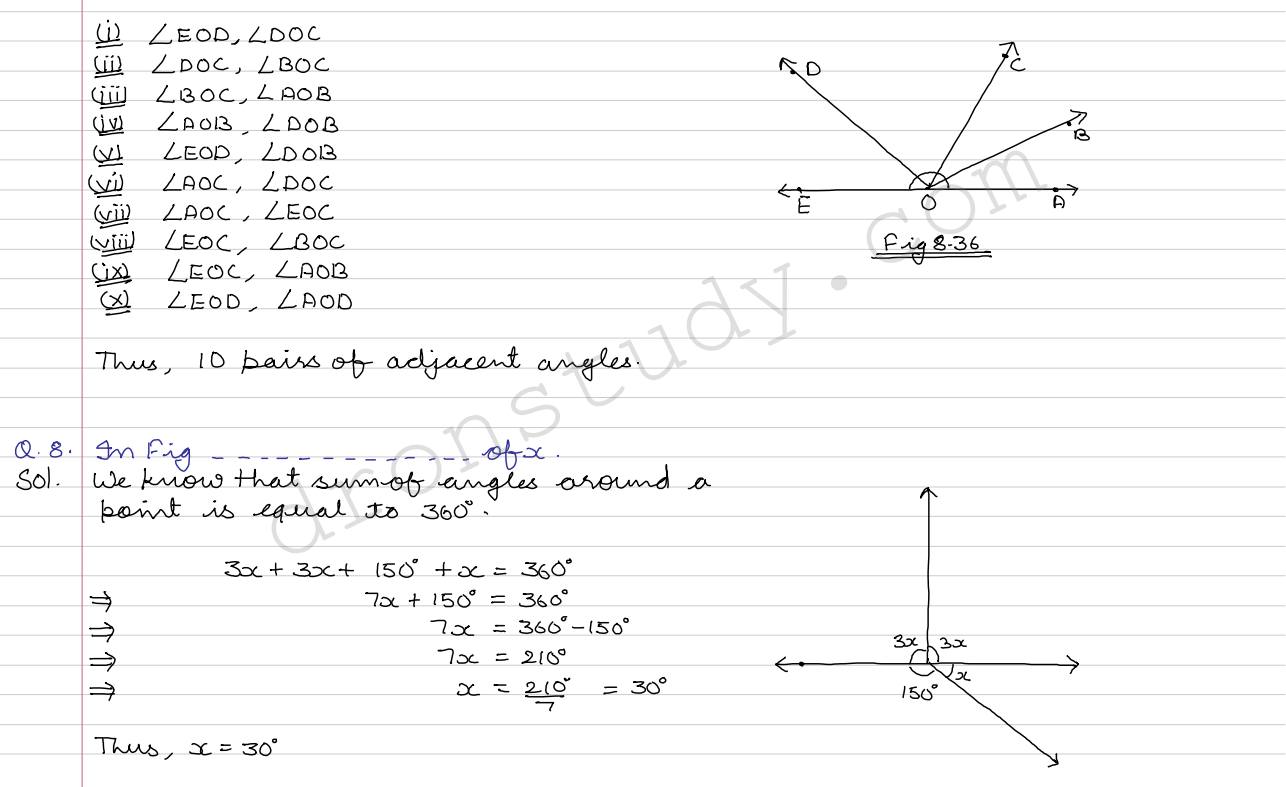 (i) ∠EOD, ∠DOC
(ii) ∠DOC, ∠BOC
(iii) ∠BOC, ∠AOB
(iv) ∠AOB, ∠DOB
(v) ∠EOD, ∠DOB
(vi) ∠AOC, ∠DOC
(vii) ∠AOC, ∠EOC
(viii) ∠EOC, ∠BOC
(ix) ∠EOC, ∠AOB
(x) ∠EOD, ∠AOD
D
C
B
E O A
Fig 8.36
Thus, 10 pairs of adjacent angles.
Q.8. In Fig ------------- of x.
Sol. We know that sum of angles around a
point is equal to 360°.
3x + 3x + 150° + x = 360°
⇒ 7x + 150° = 360°
⇒ 7x = 360° - 150°
⇒ 7x = 210°
⇒ x = 210°/7 = 30°
Thus, x = 30°
3x 3x
x
150°
dronstudy.com